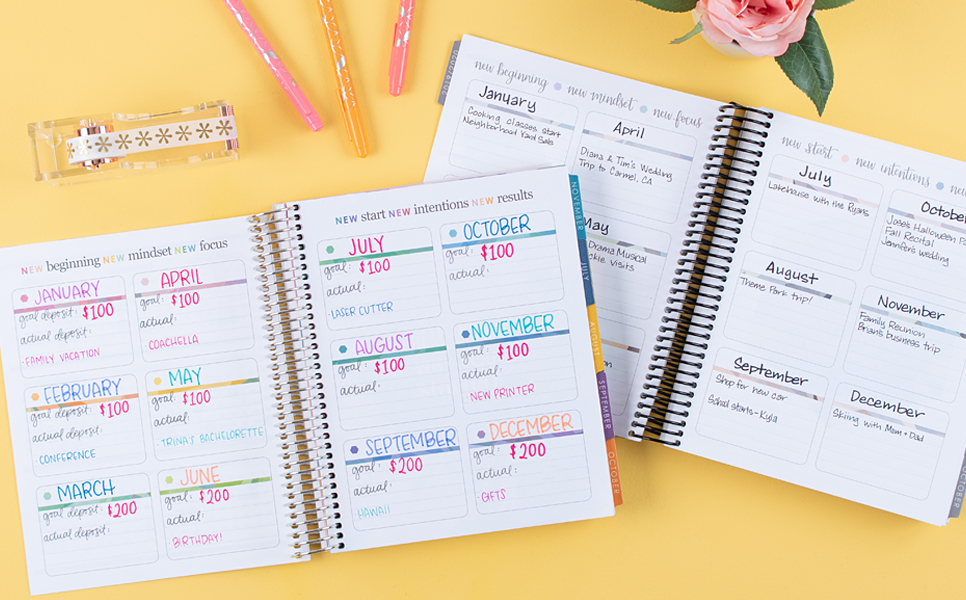 NEW beginning NEW mindset NEW focus
JANUARY
goal deposit: $100
actual deposit:
FAMILY VACATION
FEBRUARY
goal deposit: $100
actual deposit:
CONFERENCE
MARCH
goal deposit: $200
actual deposit:
APRIL
goal: $100
actual:
COACHELLA
MAY
goal: $100
actual:
TRINA'S BACHELORETTE
JUNE
goal: $200
actual:
BIRTHDAY!
NEW start NEW intentions NEW results
JULY
goal: $100
actual:
LASER CUTTER
AUGUST
goal: $100
actual:
SEPTEMBER
goal: $200
actual:
HAWAII
OCTOBER
goal: $100
actual:
NOVEMBER
goal: $100
actual:
NEW PRINTER
DECEMBER
goal: $200
actual:
GIFTS
NOVEMBER
JULY
AUGUST
SEPTEMBER
OCTOBER
new beginning new mindset new focus
January
Cooking classes start
Neighborhood Yard Sale
April
Diana & Tim's Wedding
Trip to Carmel, CA
May
Drama Musical
visits
new start new intentions
July
Lakehouse with the Ryans
August
Theme Park trip!
September
Shop for new car
School starts - Kyla
Octo
Josie's Halloween
Fall Recital
Jennifer's wedding
November
Family Reunion
Brian's business trip
December
Skiing with Mom + Dad
OCTOBER